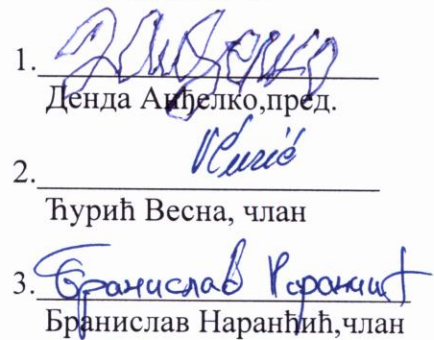 1.
Денда Анђелко,пред.
VĆurić
2.
Ћурић Весна, члан
3. Бранислав Наранђић
Бранислав Наранђић,члан